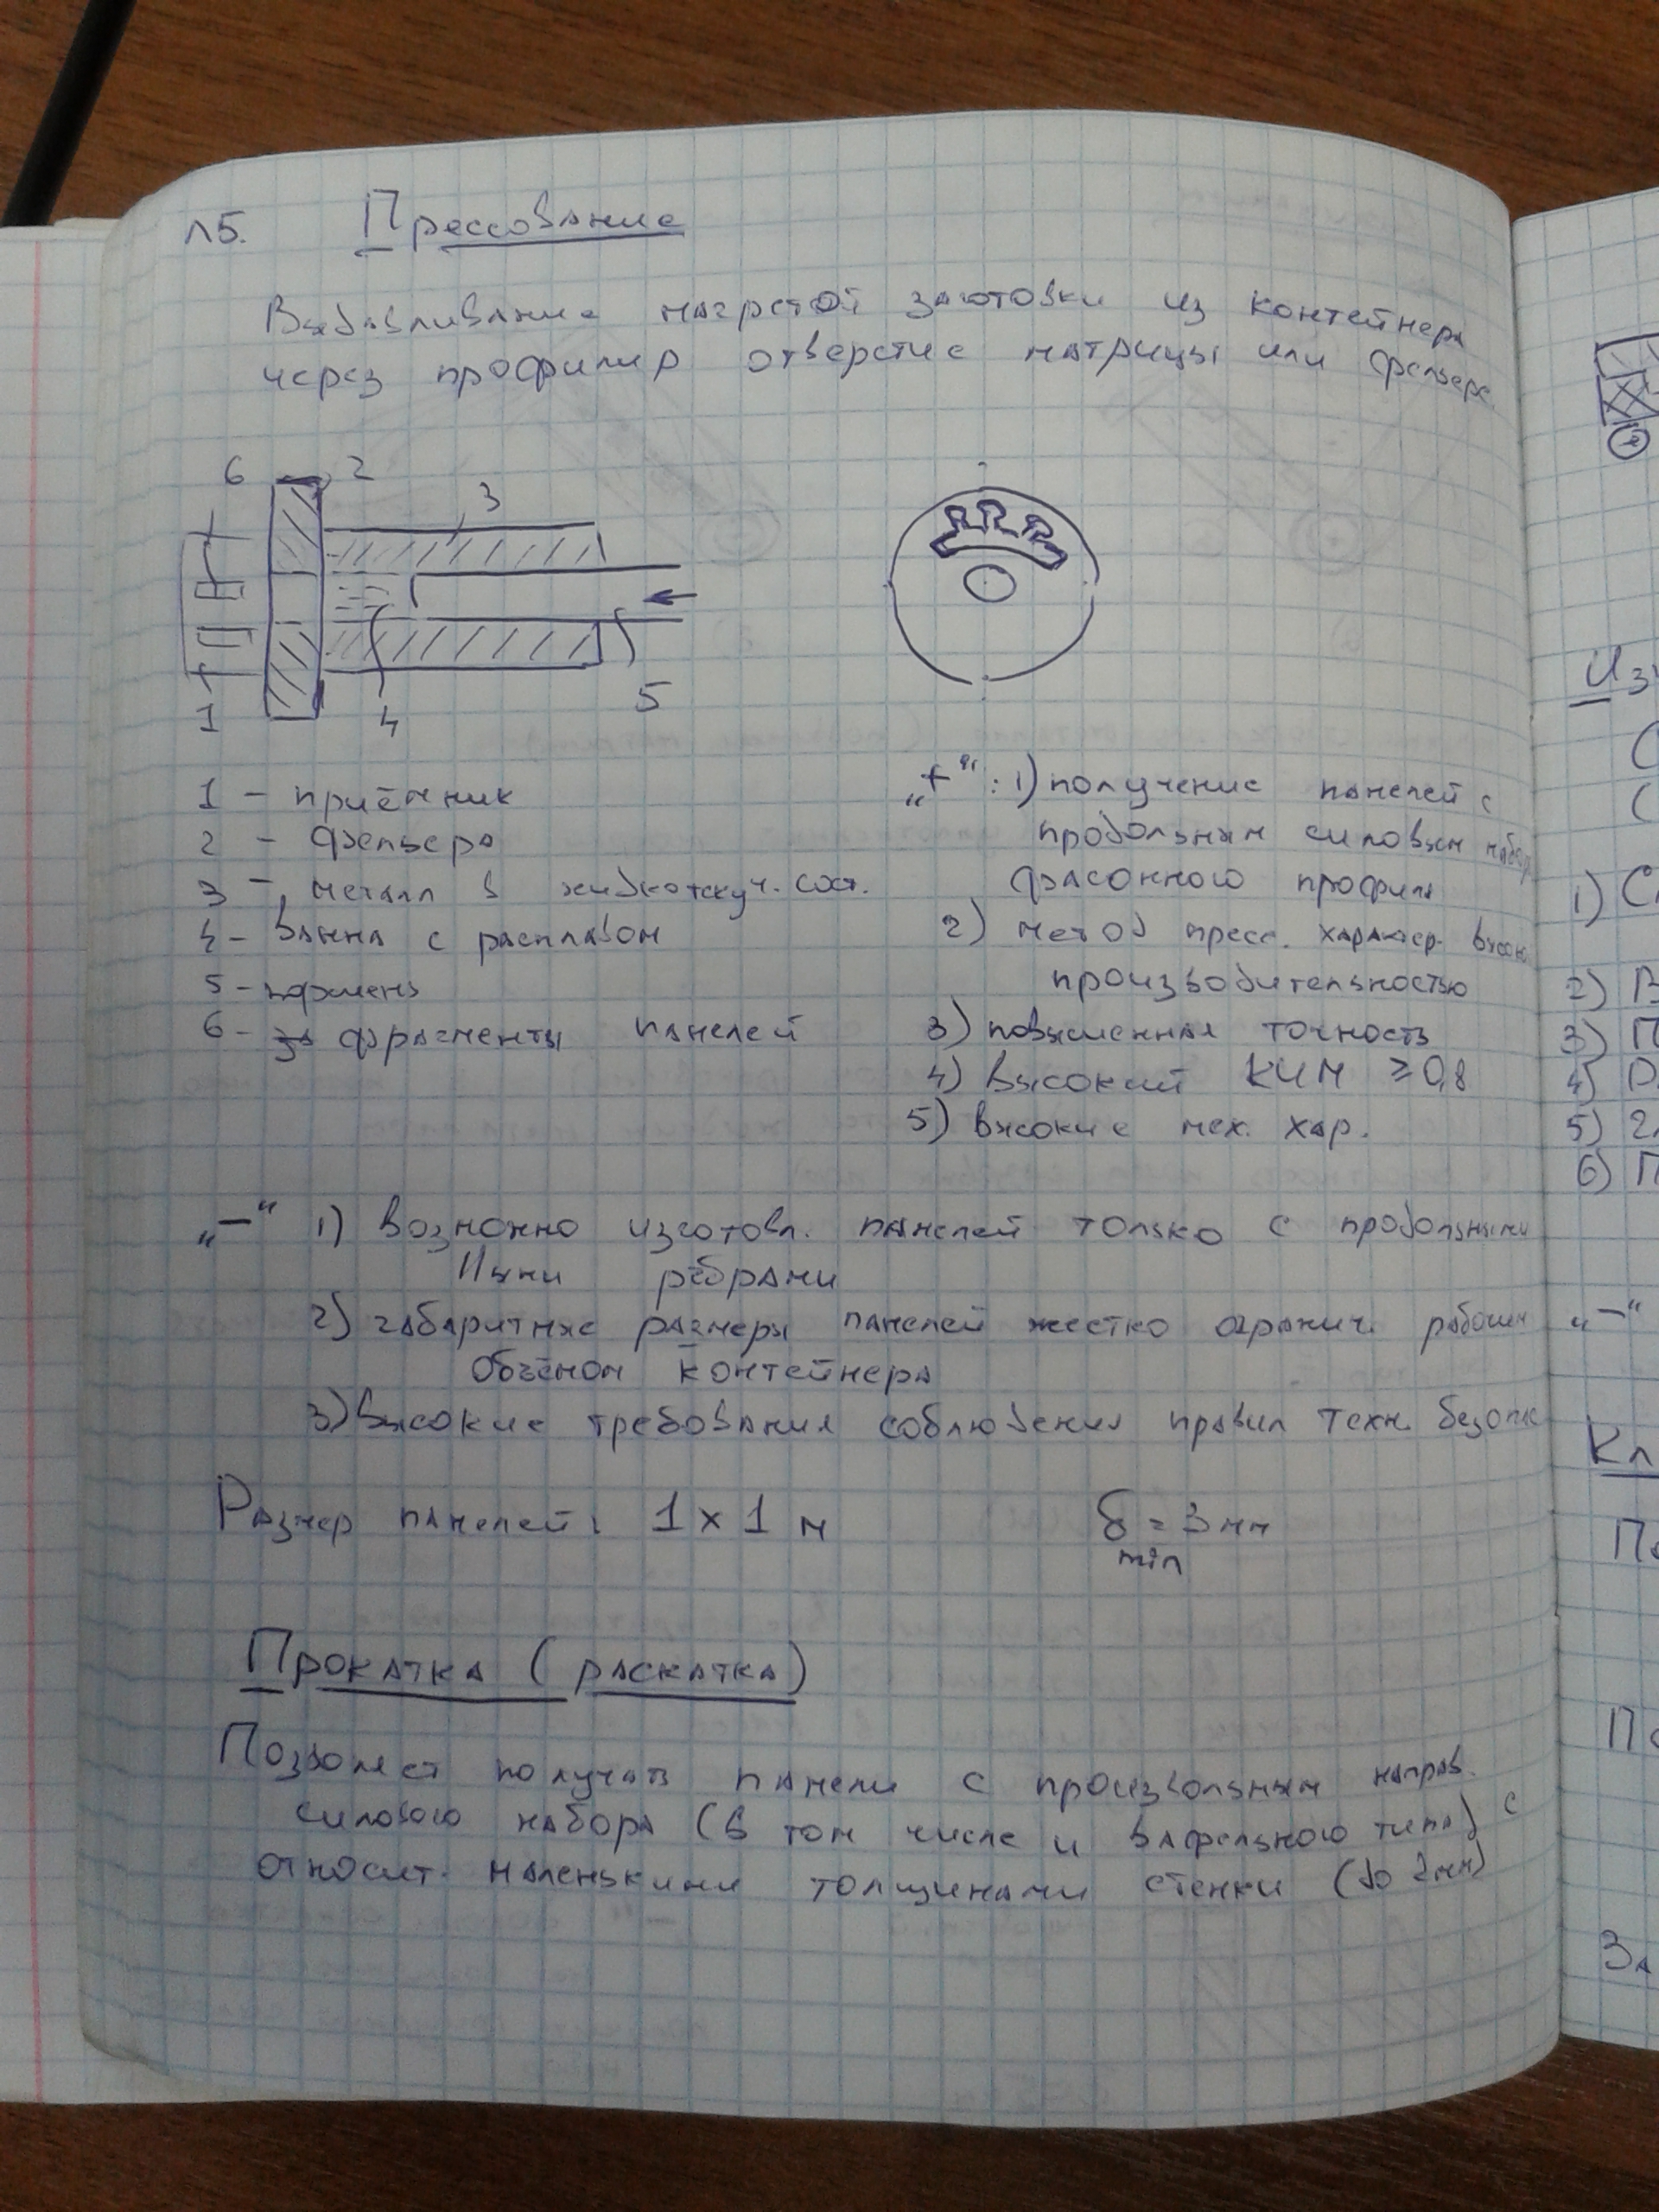 Л5. Прессование
Выдавливание нагретой заготовки из контейнера
через профилир отверстие матрицы или фельере
6 2
3
1 4 5
1 - приёмник
2 - фельера
3 - металл в жидкотекуч. сост.
4 - ванна с расплавом
5 - поршень
6 - фрагменты панелей
„+“: 1) получение панелей с
продольным силовым набор
фасонного профиля
2) метод пресс. характер. высок
производительностью
3) повышенная точность
4) высокий КИМ ≥ 0,8
5) высокие мех. хар.
„—“ 1) возможно изготовл. панелей только с продольными
ребрами
2) габаритные размеры панелей жестко огранич. рабочим
объёмом контейнера
3) высокие требования соблюдения правил техн. безопас
Размер панелей: 1 x 1 м δ = 3 мм
min
Прокатка (раскатка)
Позволяет получать панели с произвольным направ.
силового набора (в том числе и вафельного типа) с
относит. маленькими толщинами стенки (до 2мм)
Из
(
(
1) Сл
2) В
3) П
4)
5)
6) П
„—“
Кл
По
По
За